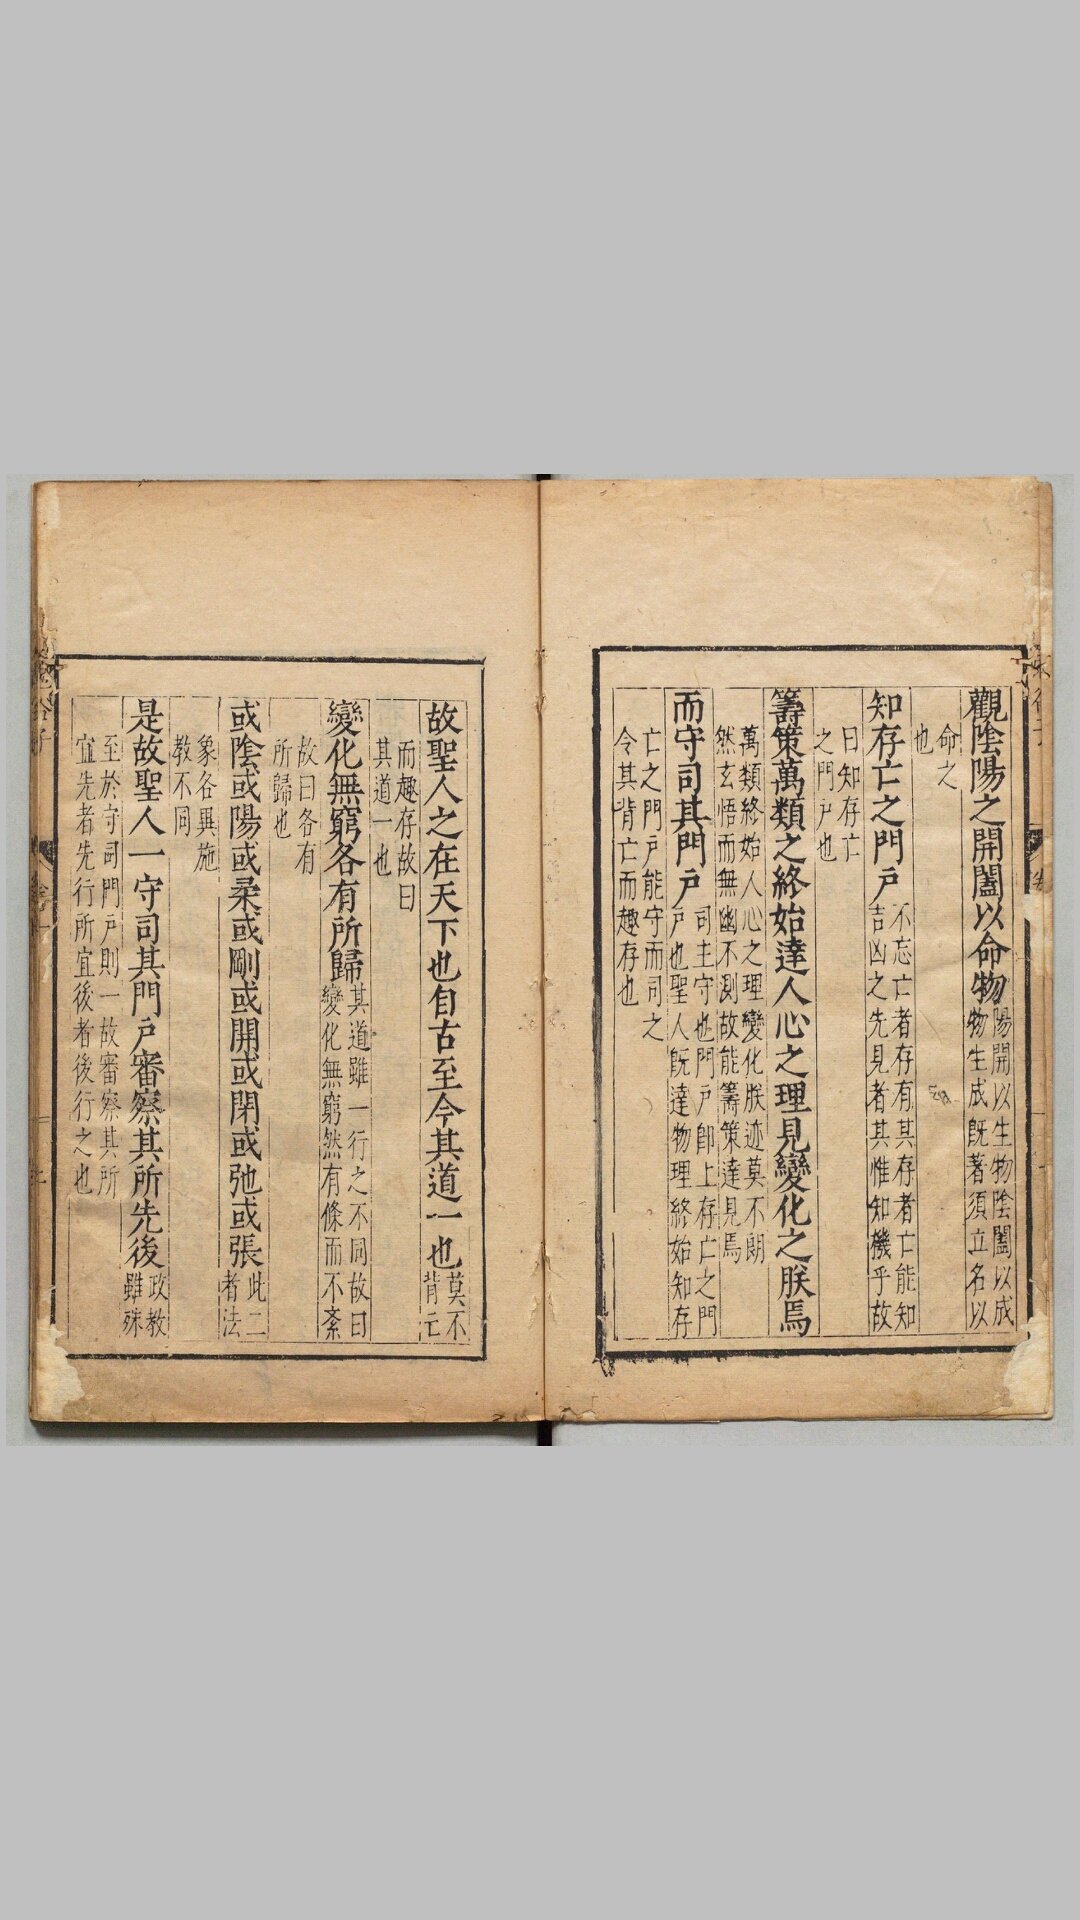 觀陰陽之開闔以命物陽開以生物陰闔以成
物生成旣著須立名以
命之
也
知存亡之門戶不忘亡者存有其存者亡能知
吉凶之先見者其惟知機乎故
曰知存亡
之門戶也
籌策萬類之終始達人心之理見變化之朕焉
萬類終始人心之理變化朕迹莫不朗
然玄悟而無幽不測故能籌策達見焉
而守司其門戶司主守也門戶卽上存亡之門
戶也聖人旣達物理終始知存
亡之門戶能守而司之
令其背亡而趣存也
故聖人之在天下也自古至今其道一也莫不
背亡
而趣存故曰
其道一也
變化無窮各有所歸其道雖一行之不同故曰
變化無窮然有條而不紊
故曰各有
所歸也
或陰或陽或柔或剛或開或閉或弛或張此二
者法
象各異施
教不同
是故聖人一守司其門戶審察其所先後政教
雖殊
至於守司門戶則一故審察其所
宜先者先行所宜後者後行之也